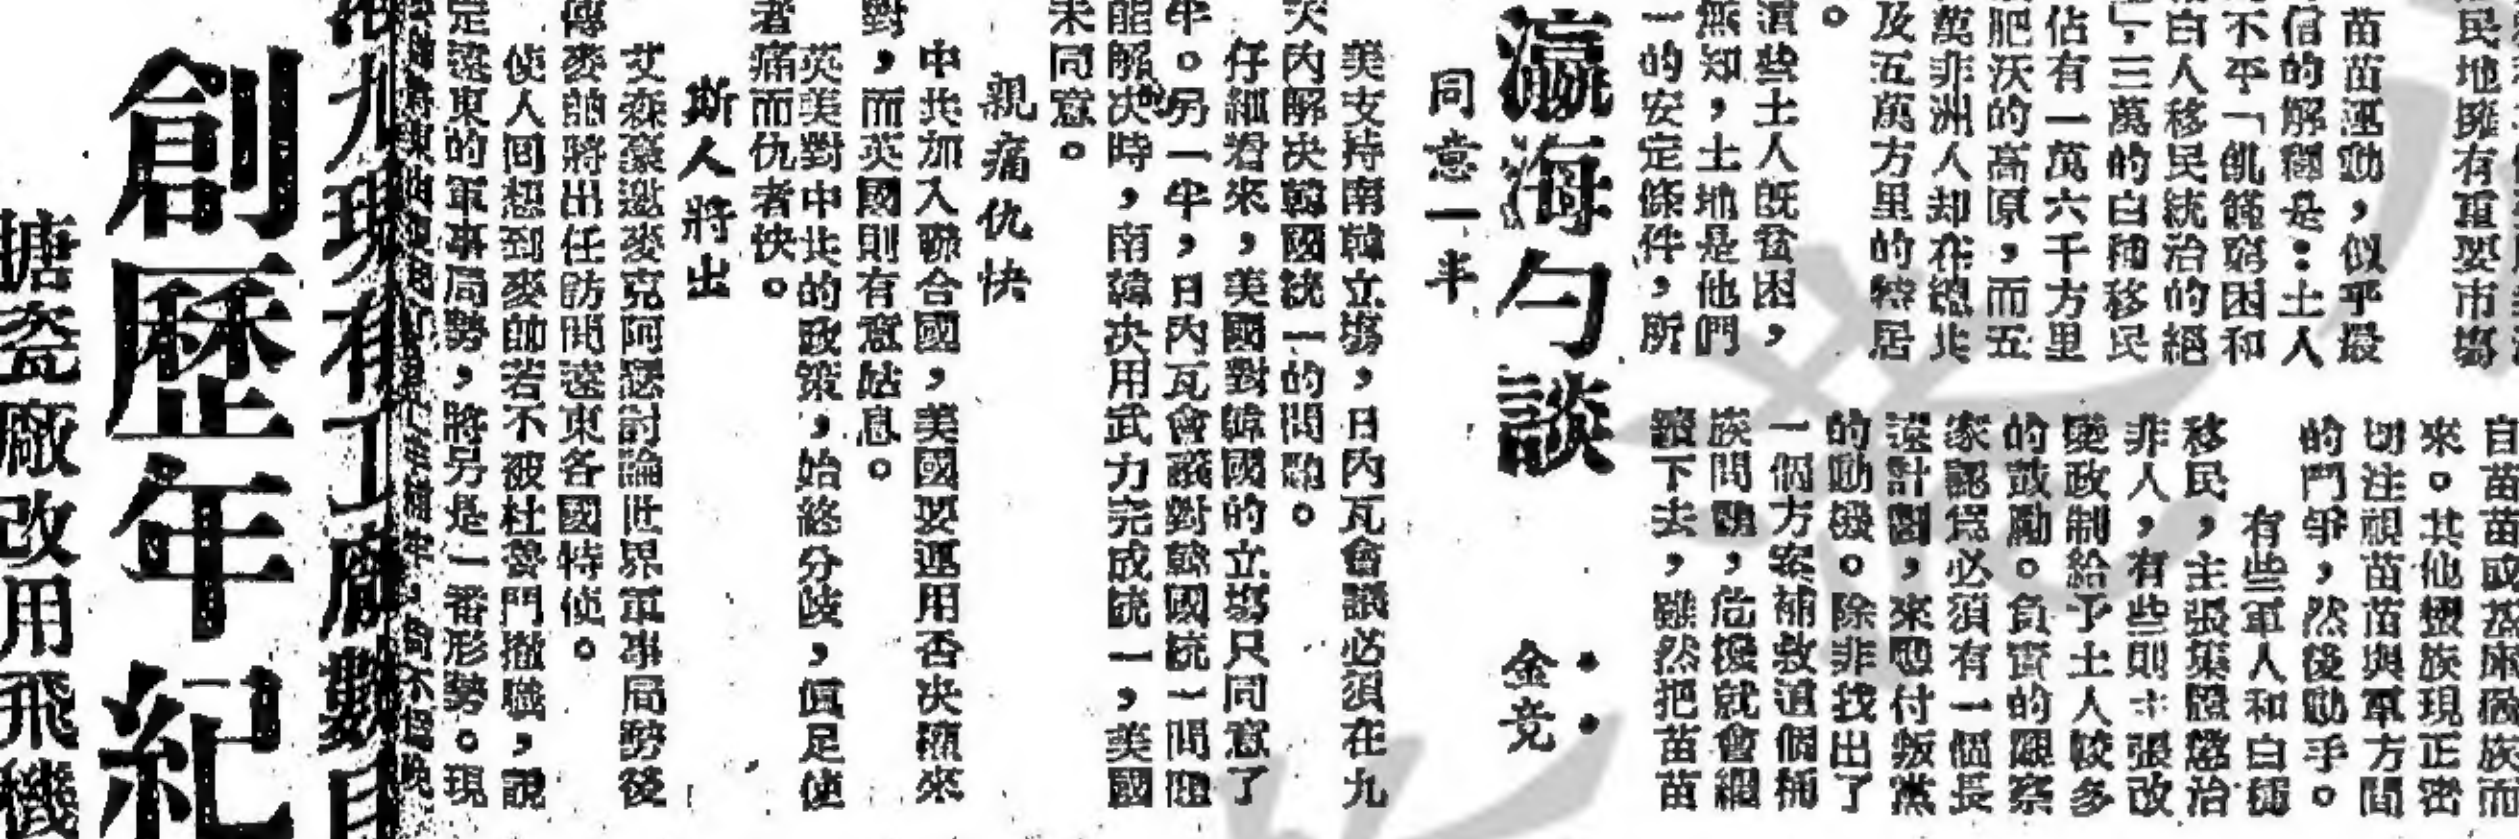 民地擁有重要市場
苗苗運動，似乎最
信的解釋是：土人
不平「飢饉窮困和
白人移民統治的絕
」，三萬的白種移民
佔有一萬六千方里
肥沃的高原，而五
萬非洲人却在總共
及五萬方里的特居
。
這些土人既貧困，
無知，土地是他們
一的安定條件，所
自苗苗或 族而
來。其他蠻族現正密
切注視苗苗與軍方間
的鬥爭，然後動手。
有些軍人和白種
移民，主張集體懲治
非人，有些則主張改
變政制給予土人較多
的鼓勵。負責的觀察
家認爲必須有一個長
遠計劃，來應付叛黨
的動機。除非找出了
一個方案補救這個種
族問題，危機就會繼
續下去，雖然把苗苗
瀛海勺談
金堯
同意一半
美支持南韓立場，日內瓦會議必須在九
天內解决韓國統一的問題。
仔細看來，美國對韓國的立場只同意了
一半。另一半，日內瓦會議對韓國統一問題
能解决時，南韓决用武力完成統一，美國
未同意。
親痛仇快
中共加入聯合國，美國要運用否决權來
對，而英國則有意姑息。
英美對中共的政策，始終分歧，眞足使
者痛而仇者快。
斯人將出
艾森豪邀麥克阿瑟討論世界軍事局勢後
傳麥帥將出任訪問遠東各國特使。
使人回想到麥帥若不被杜魯門撤職，說
定遠東的軍事局勢，將另是一番形勢。現
現有工廠數目
創歷年紀
搪瓷廠改用飛機